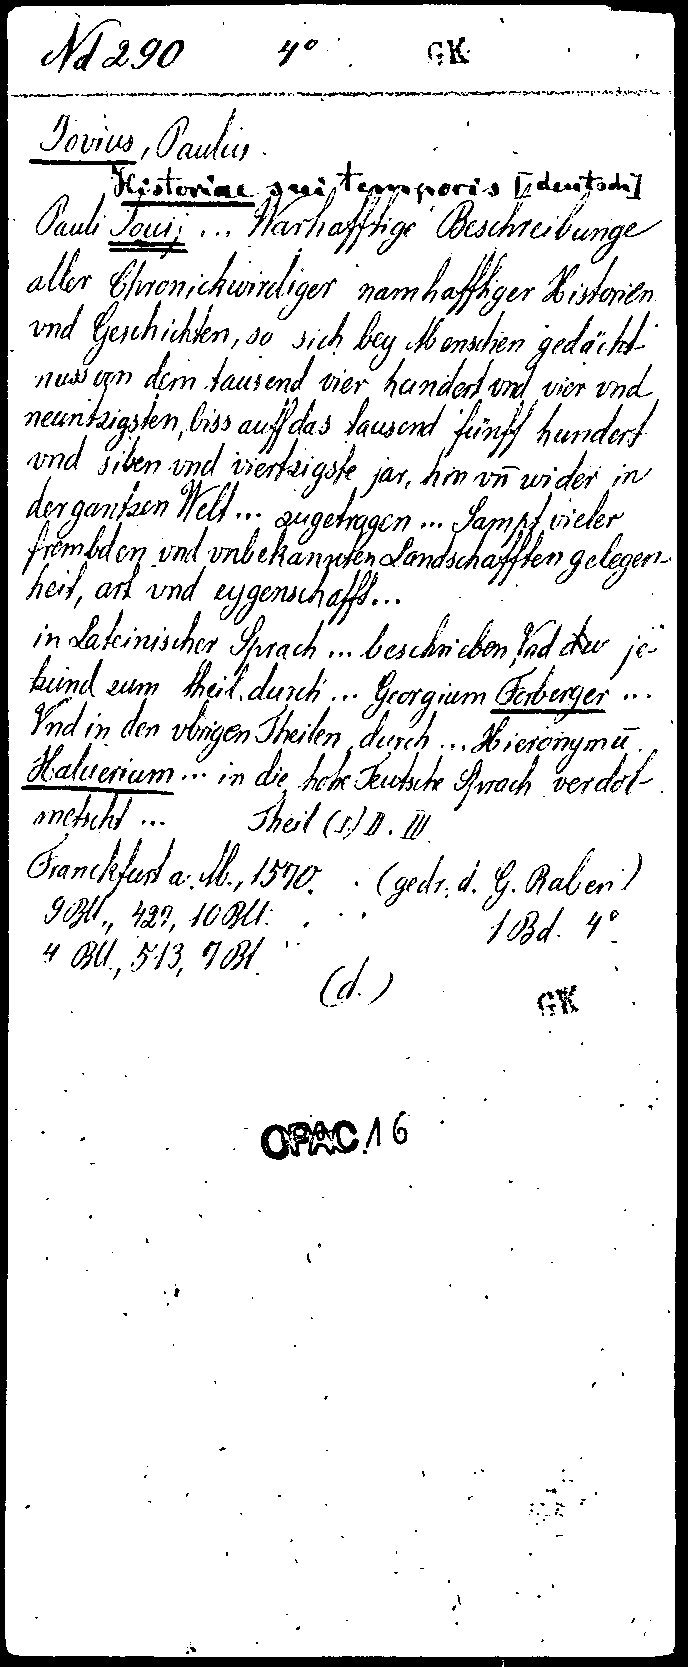 Nd 290 4° GK
Jovius, Paulus.
Historiae sui temporis [deutsch]
Pauli Jouij ... Warhafftige Beschreibunge
aller Chronickwirdiger namhafftiger Historien
vnd Geschichten, so sich bey Menschen gedächt-
nuss von dem tausend vier hundert vnd vier vnd
neuntzigsten, biss auff das tausend fünff hundert
vnd siben vnd viertzigste jar, hin vn̄ wider in
der gantzen Welt ... zugetragen ... Sampt vieler
frembden vnd vnbekannten Landschafften gelegen-
heit, art vnd eygenschafft ...
in Lateinischer Sprach ... beschrieben, Vnd je-
tzund zum theil durch ... Georgium Forberger ...
Vnd in den vbrigen Theilen durch ... Hieronymū
Haluerium ... in die hohe Teutsche Sprach verdol-
metscht ... Theil (I.) II. III.
Franckfurt a. M., 1570. (gedr. d. G. Raben)
9 Bll., 427, 10 Bll. 1 Bd. 4°.
4 Bll., 513, 7 Bl.
(d.)
GK
OPAC 16